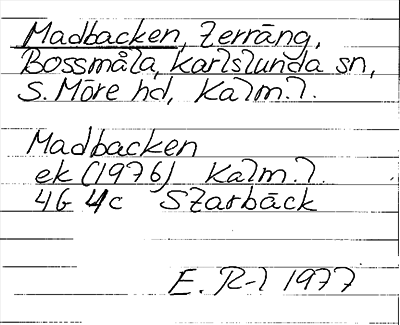 Madbacken, terräng,
Bossmåla, Karlslunda sn,
S. Möre hd, Kalm. l.
Madbacken
ek (1976) Kalm. l.
4G 4c Starbäck
E. R-l 1977